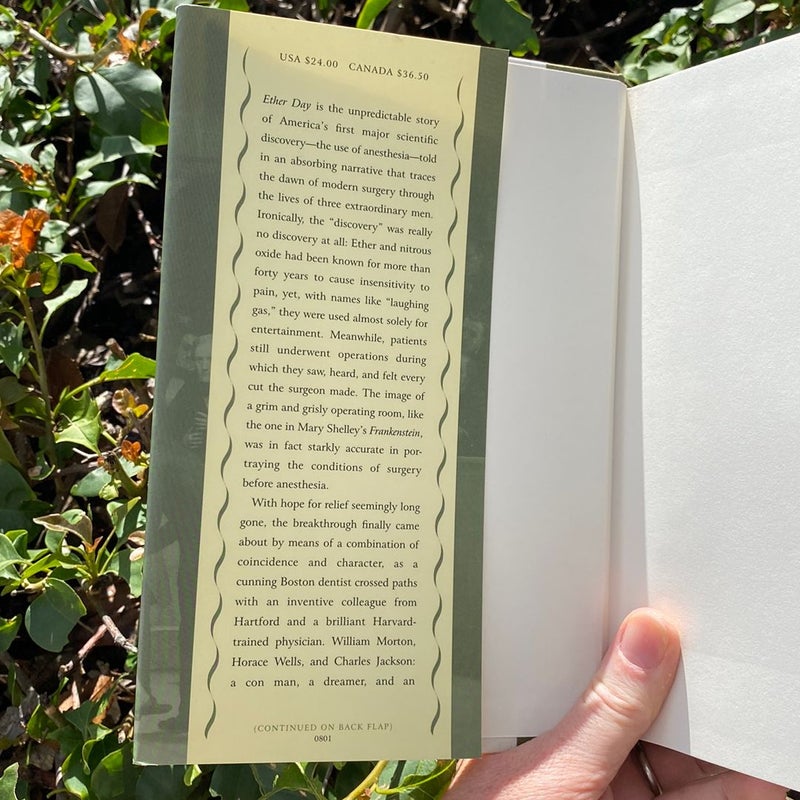 USA $24.00 CANADA $36.50
Ether Day is the unpredictable story
of America's first major scientific
discovery—the use of anesthesia—told
in an absorbing narrative that traces
the dawn of modern surgery through
the lives of three extraordinary men.
Ironically, the "discovery" was really
no discovery at all: Ether and nitrous
oxide had been known for more than
forty years to cause insensitivity to
pain, yet, with names like "laughing
gas," they were used almost solely for
entertainment. Meanwhile, patients
still underwent operations during
which they saw, heard, and felt every
cut the surgeon made. The image of
a grim and grisly operating room, like
the one in Mary Shelley's Frankenstein,
was in fact starkly accurate in por-
traying the conditions of surgery
before anesthesia.
With hope for relief seemingly long
gone, the breakthrough finally came
about by means of a combination of
coincidence and character, as a
cunning Boston dentist crossed paths
with an inventive colleague from
Hartford and a brilliant Harvard-
trained physician. William Morton,
Horace Wells, and Charles Jackson:
a con man, a dreamer, and an
(CONTINUED ON BACK FLAP)
0801